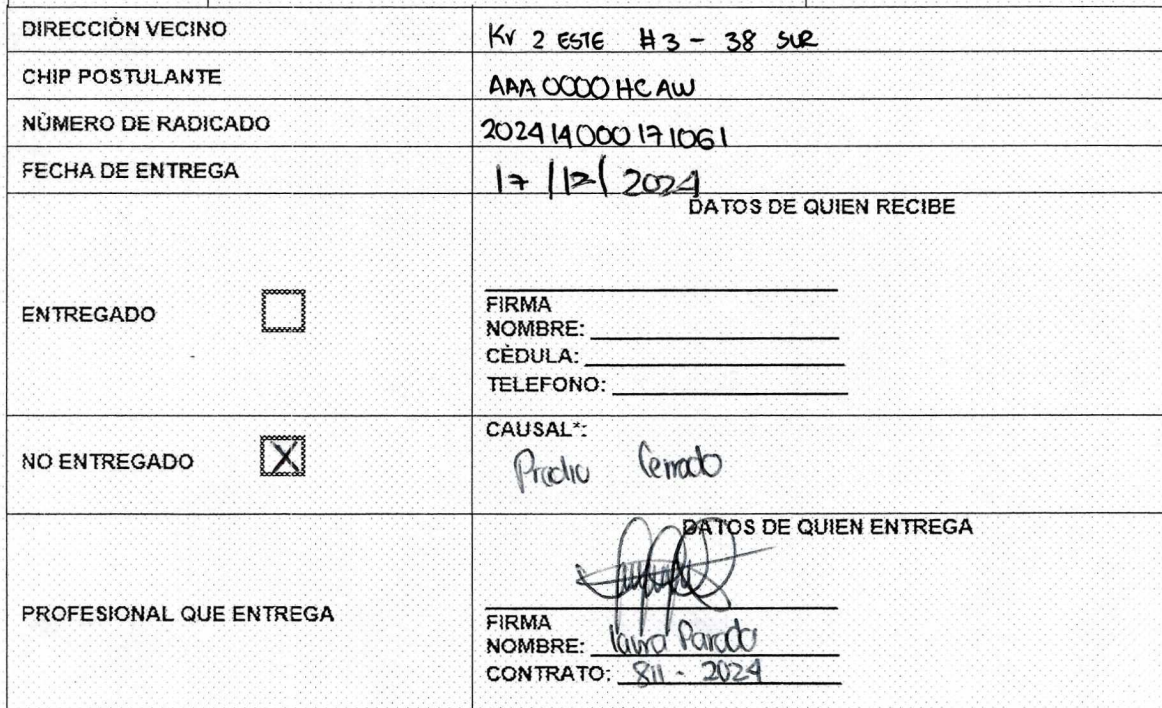 DIRECCIÓN VECINO
Kr 2 ESTE #3 - 38 SUR
CHIP POSTULANTE
AAA 0000 HCAW
NÙMERO DE RADICADO
202414000171061
FECHA DE ENTREGA
17/12/2024
DATOS DE QUIEN RECIBE
ENTREGADO
FIRMA
NOMBRE:
CÈDULA:
TELEFONO:
NO ENTREGADO X
CAUSAL*:
Predio Cerrado
DATOS DE QUIEN ENTREGA
PROFESIONAL QUE ENTREGA
FIRMA
NOMBRE: Laura Parado
CONTRATO: 811 - 2024